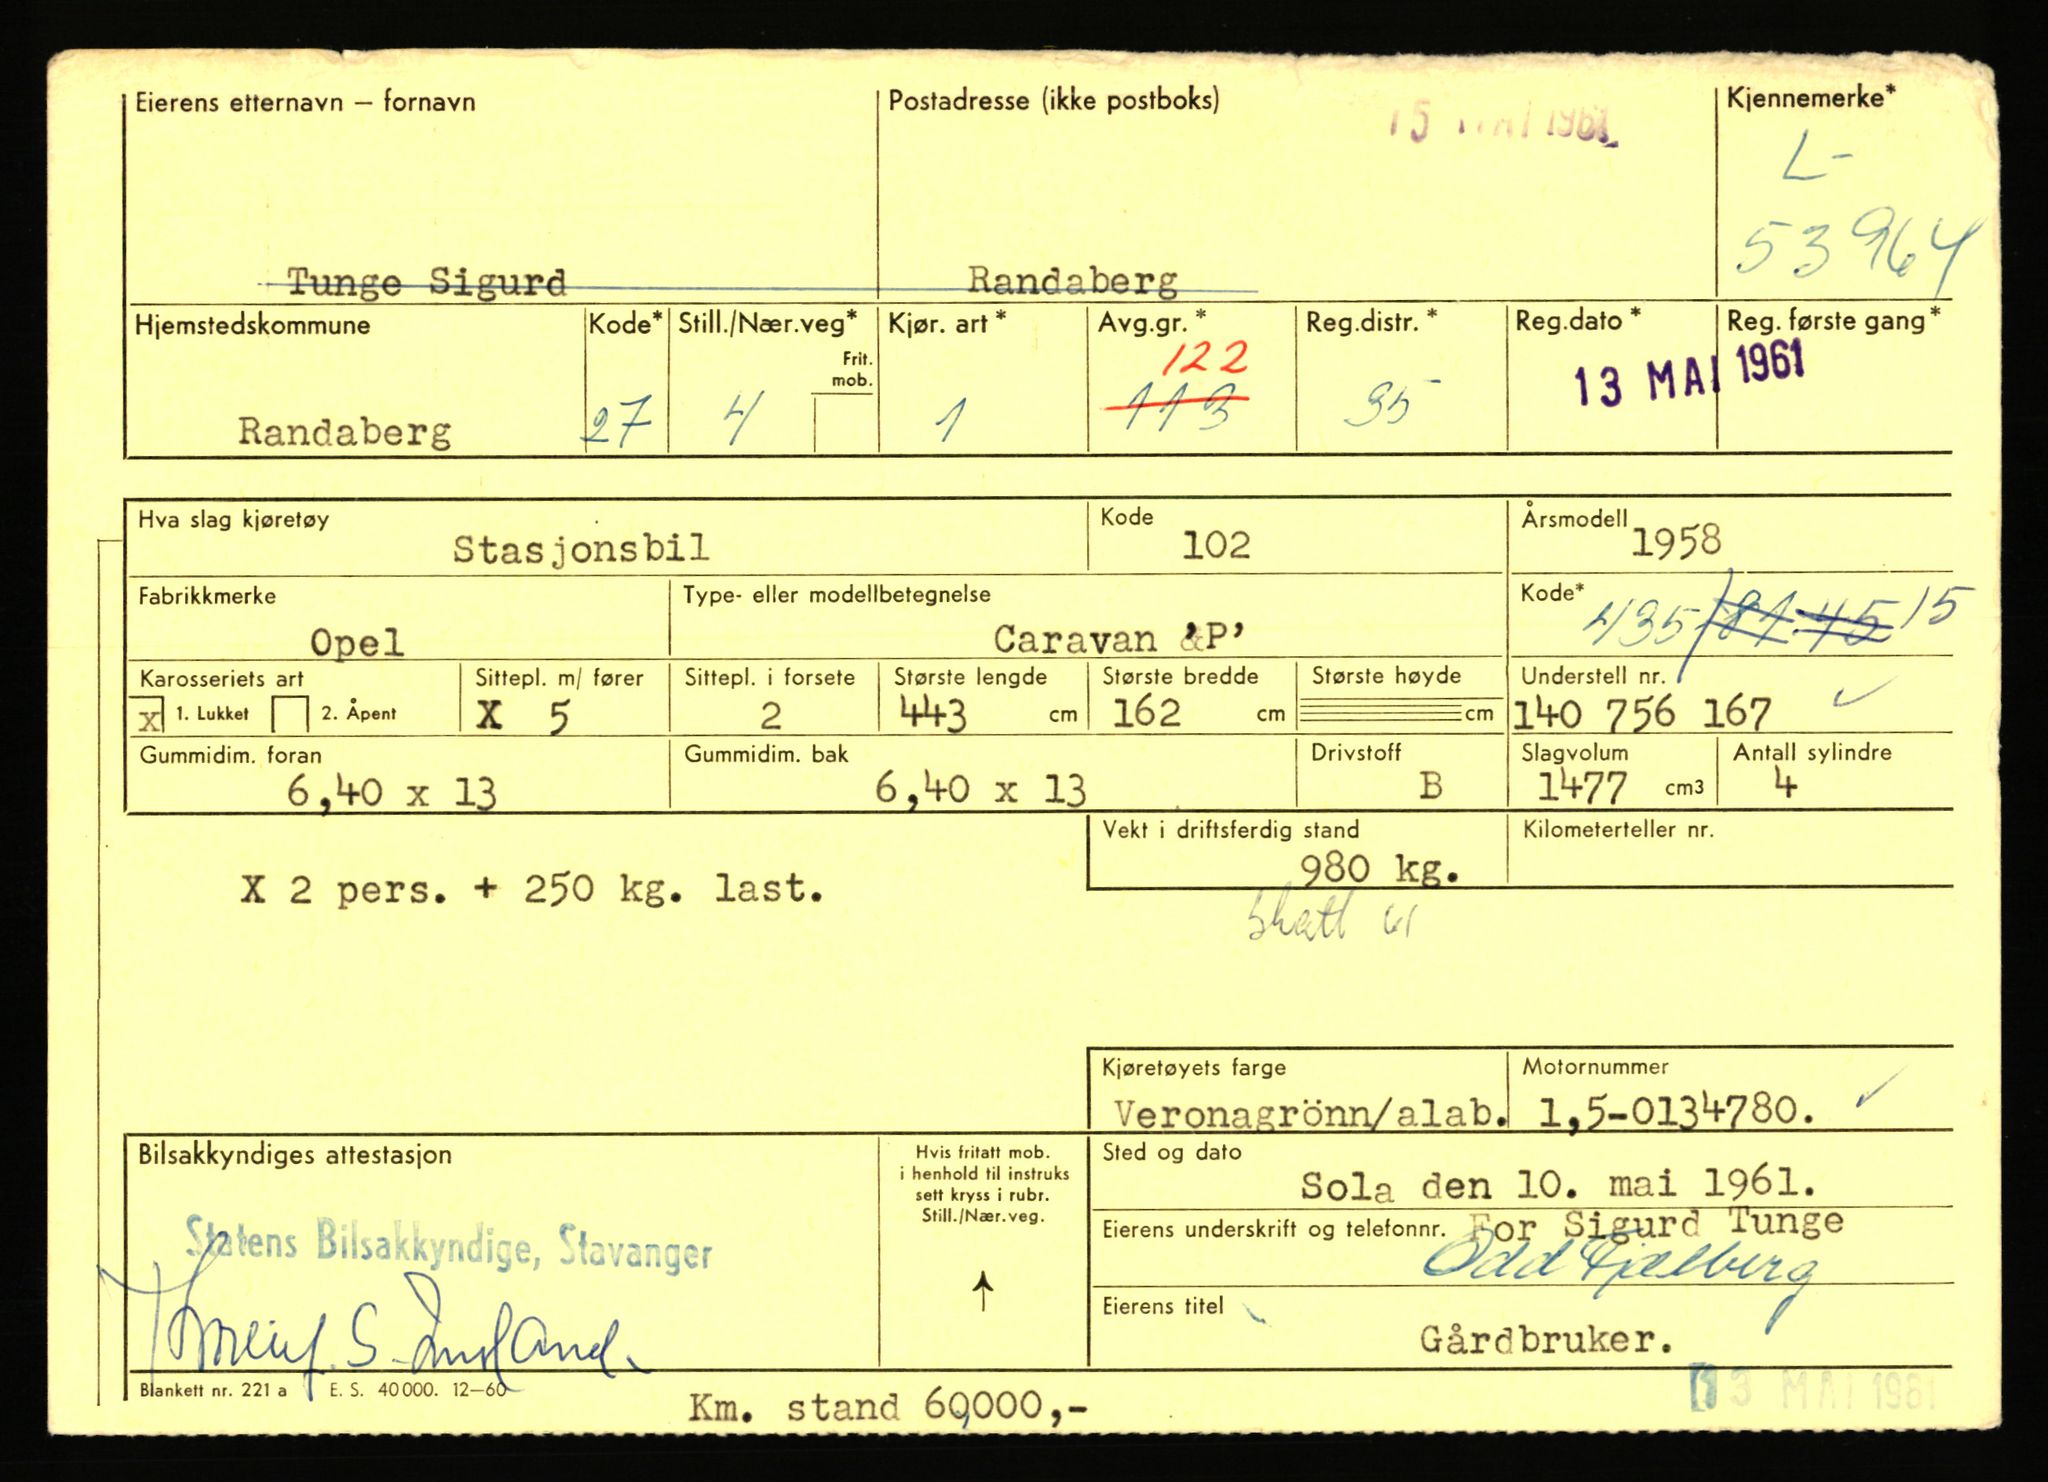 Eierens etternavn – fornavn
Postadresse (ikke postboks)
15 MAI 1961
Kjennemerke*
L-
53964
Tunge Sigurd
Randaberg
Hjemstedskommune
Kode*
Still./Nær.veg*
Frit.
mob.
Kjør. art*
Avg.gr.*
Reg.distr.*
Reg.dato*
Reg. første gang*
122
13 MAI 1961
Randaberg
27
4
1
113
35
Hva slag kjøretøy
Stasjonsbil
Kode
102
Årsmodell
1958
Fabrikkmerke
Opel
Type- eller modellbetegnelse
Caravan 'P'
Kode*
435/87 45 15
Karosseriets art
x 1. Lukket 2. Åpent
Sittepl. m/ fører
X 5
Sittepl. i forsete
2
Største lengde
443 cm
Største bredde
162 cm
Største høyde
cm
Understell nr.
140 756 167
Gummidim. foran
6,40 x 13
Gummidim. bak
6,40 x 13
Drivstoff
B
Slagvolum
1477 cm3
Antall sylindre
4
Vekt i driftsferdig stand
980 kg.
Kilometerteller nr.
X 2 pers. + 250 kg. last.
skatt 61
Kjøretøyets farge
Veronagrönn/alab.
Motornummer
1,5-0134780.
Bilsakkyndiges attestasjon
Statens Bilsakkyndige, Stavanger
Hvis fritatt mob.
i henhold til instruks
sett kryss i rubr.
Still./Nær.veg.
Sted og dato
Sola den 10. mai 1961.
Eierens underskrift og telefonnr.
For Sigurd Tunge
Odd Fjelberg
Eierens titel
Gårdbruker.
Blankett nr. 221 a E. S. 40000. 12–60
Km. stand 60,000,-
13 MAI 1961